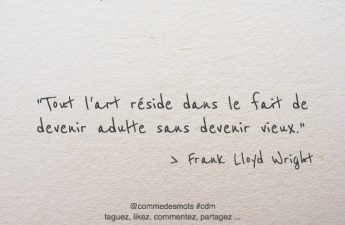 "Tout l'art réside dans le fait de
devenir adulte sans devenir vieux."
> Frank Lloyd Wright
@commedesmots #cdm
taguez, likez, commentez, partagez ...